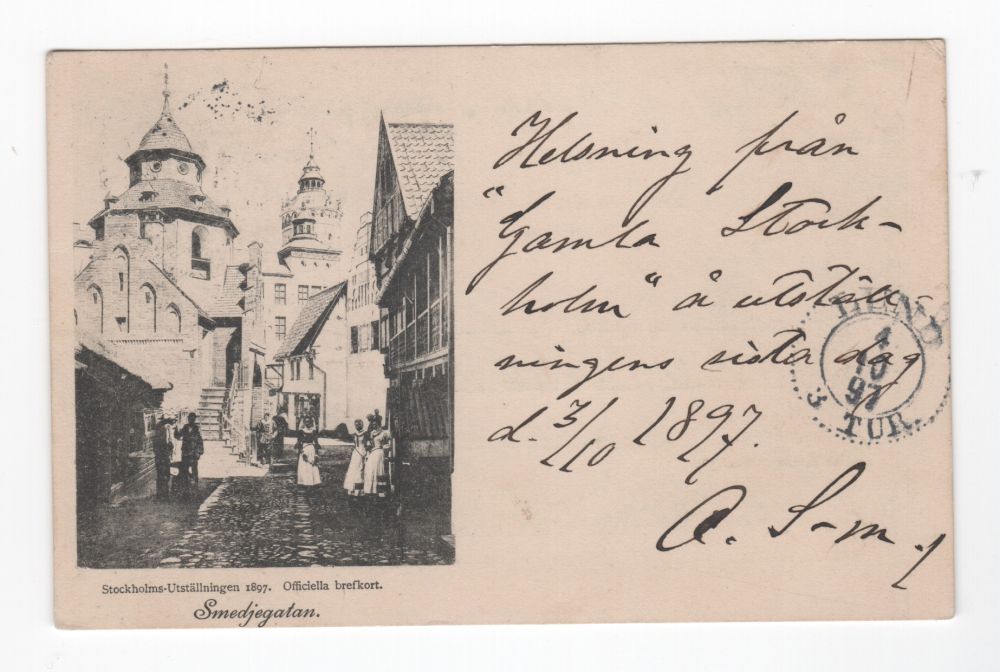 Helsning från
"Gamla Stock-
holm" å utställ-
ningens sista dag
d. 3/10 1897.
A. S-m.
4
10
97
3 TUR.
Stockholms-Utställningen 1897. Officiella brefkort.
Smedjegatan.